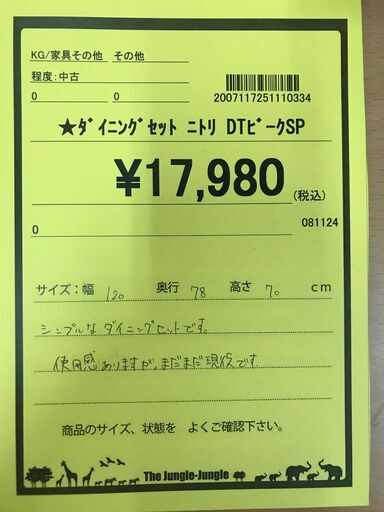 KG/家具その他 その他
程度:中古
0 0
2007117251110334
★ﾀﾞｲﾆﾝｸﾞｾｯﾄ ﾆﾄﾘ DTﾋﾞｰｸSP
¥17,980 (税込)
0 081124
サイズ:幅 120 奥行 78 高さ 70 cm
シンプルなダイニングセットです。
使用感ありますが、まだまだ現役です
商品のサイズ、状態を よくご確認下さい。
The Jungle-Jungle